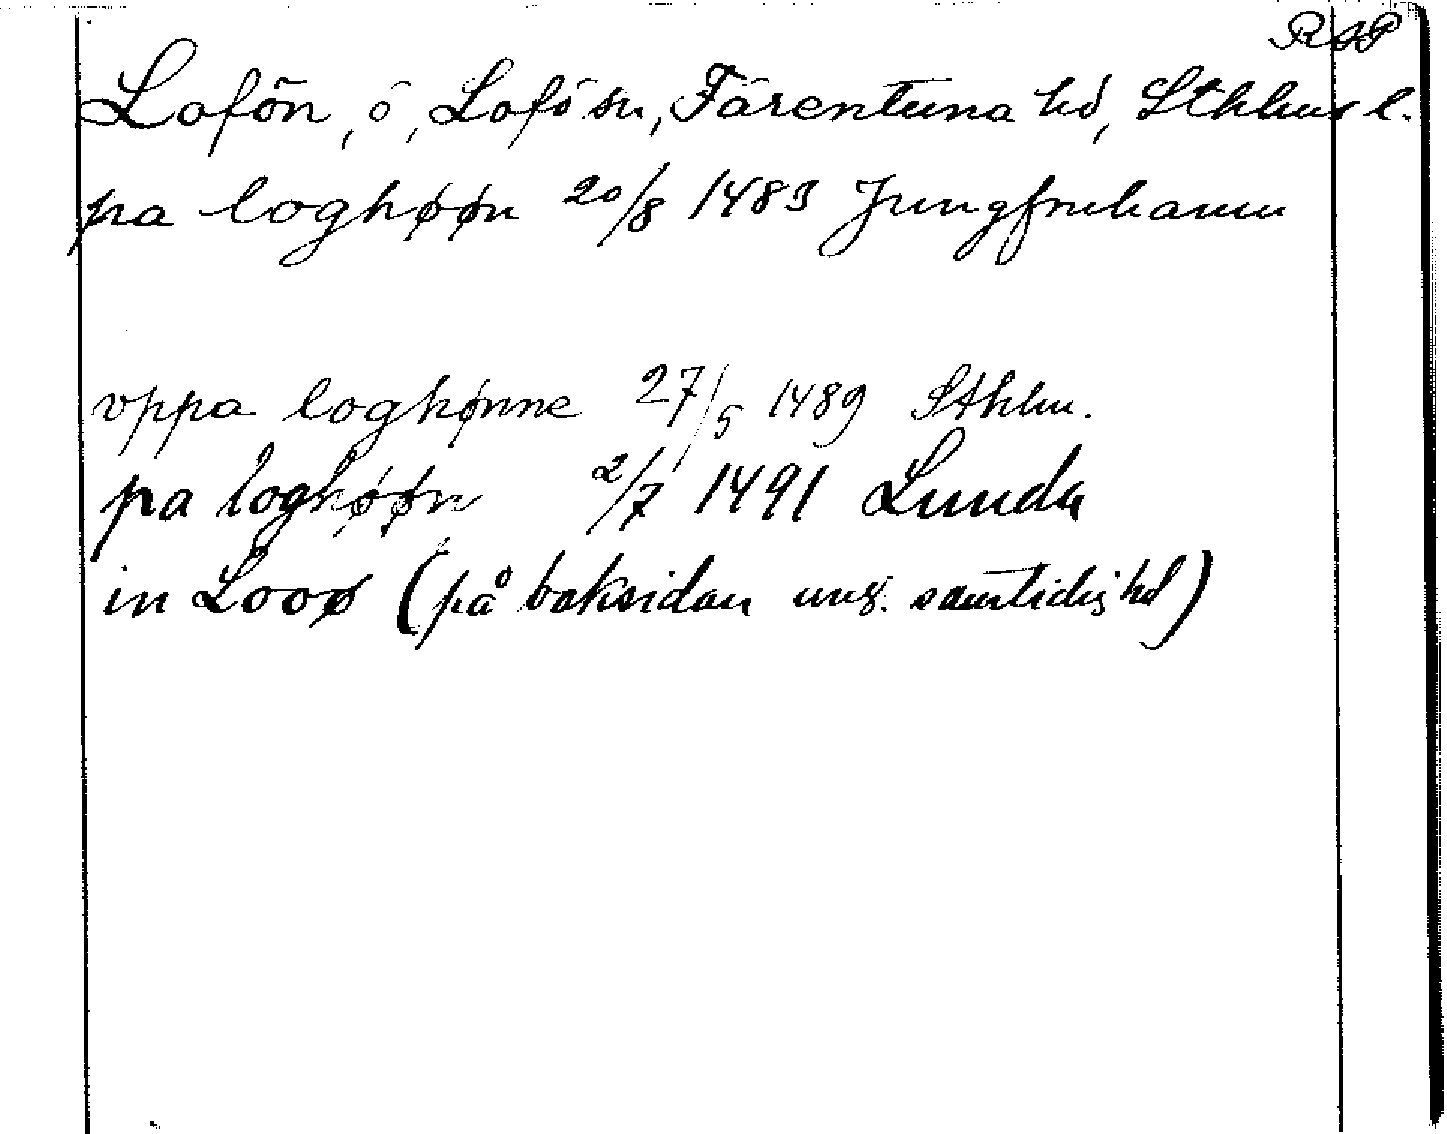 RAP
Lofön, ö, Lofö sn, Färentuna hd, Sthlms l.
pa loghøøn 20/8 1483 Jungfruhamn
vppa loghønne 27/5 1489 Sthlm.
pa loghøøn 2/7 1491 Lunda
in Looø (på baksidan ung. samtidig hd)